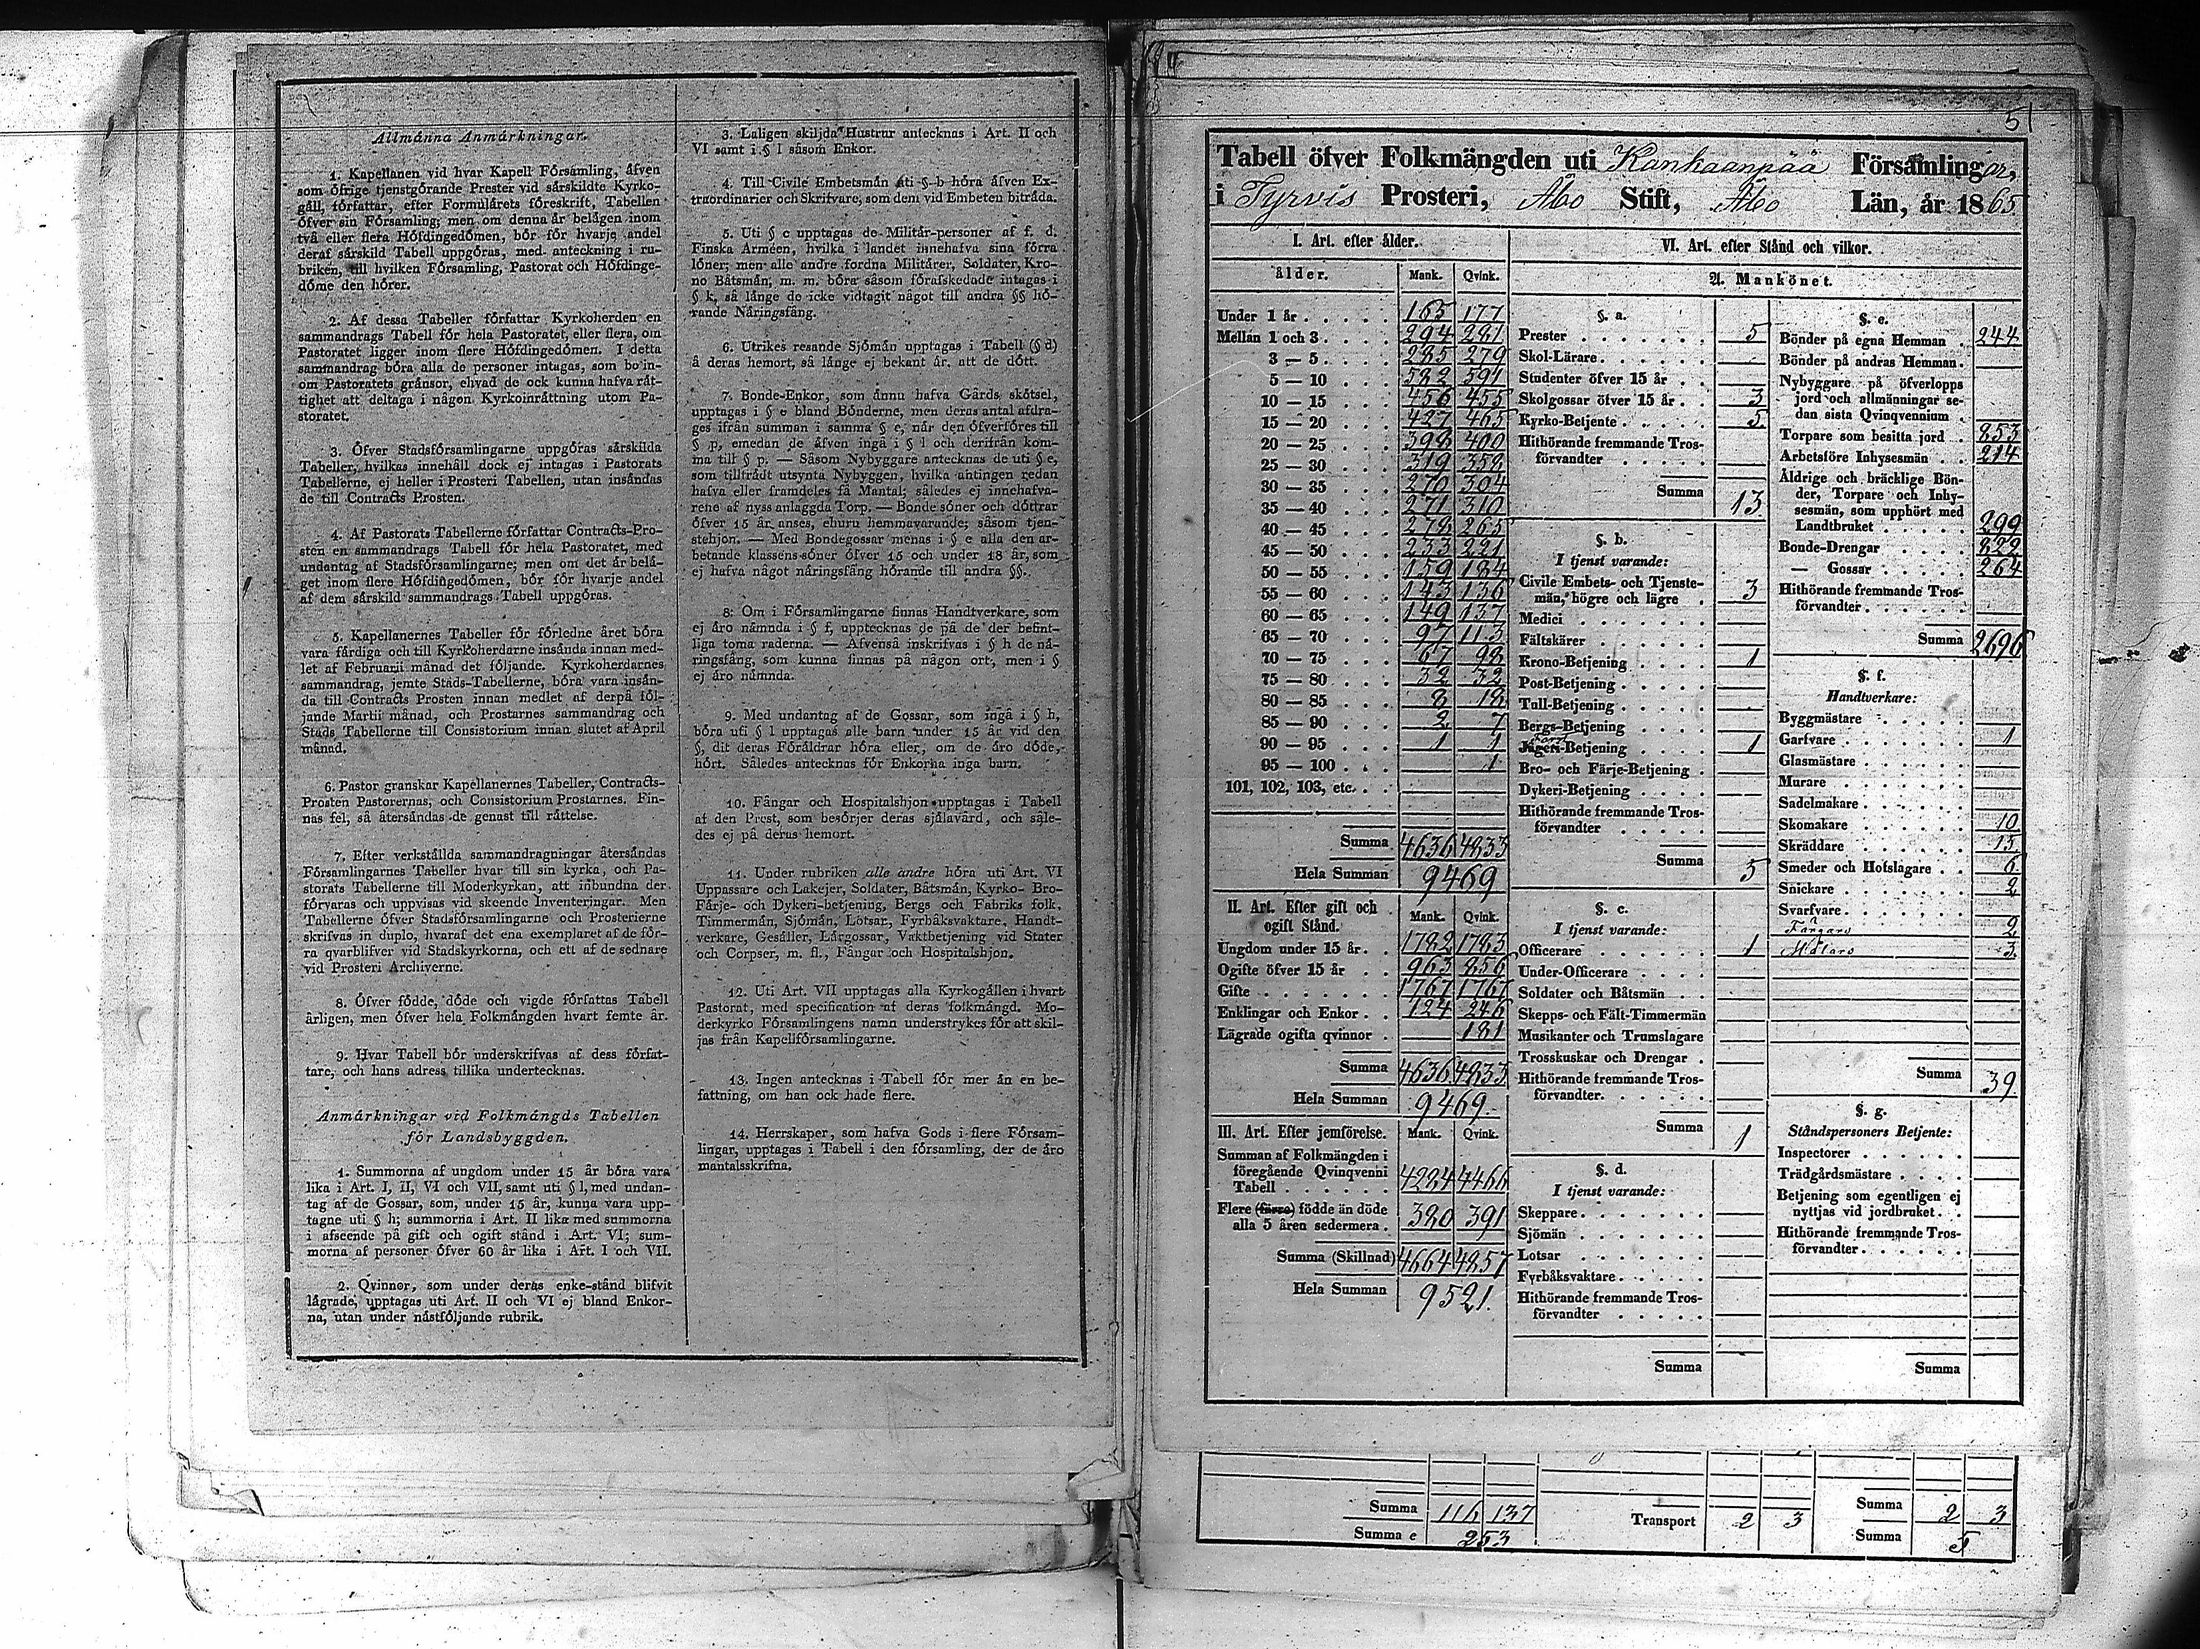 Allmänna Anmärkningar.
1. Kapellanen vid hvar Kapell Församling, äfven
som öfrige tjenstgörande Prester vid särskildte Kyrko-
gäll, författar, efter Formulärets föreskrift, Tabellen
öfver sin Församling; men om denna är belägen inom
två eller flera Höfdingedömen, bör för hvarje andel
deraf särskild Tabell uppgöras, med anteckning i ru-
briken, till hvilken Församling, Pastorat och Höfdinge-
döme den hörer.
2. Af dessa Tabeller författar Kyrkoherden en
sammandrags Tabell för hela Pastoratet, eller flera, om
Pastoratet ligger inom flere Höfdingedömen. I detta
sammandrag böra alla de personer intagas, som bo in-
om Pastoratets gränsor, ehvad de ock kunna hafva rät-
tighet att deltaga i någon Kyrkoinrättning utom Pa-
storatet.
3. Öfver Stadsförsamlingarne uppgöras särskilda
Tabeller, hvilkas innehåll dock ej intagas i Pastorats
Tabellerne, ej heller i Prosteri Tabellen, utan insändas
de till Contracts Prosten.
4. Af Pastorats Tabellerne författar Contracts-Pro-
sten en sammandrags Tabell för hela Pastoratet, med
undantag af Stadsförsamlingarne; men om det är belä-
get inom flere Höfdingedömen, bör för hvarje andel
af dem särskild sammandrags Tabell uppgöras.
5. Kapellanernes Tabeller för förledne året böra
vara färdiga och till Kyrkoherdarne insända innan med-
let af Februarii månad det följande. Kyrkoherdarnes
sammandrag, jemte Städs-Tabellerne, böra vara insän-
da till Contracts Prosten innan medlet af derpå föl-
jande Martii månad, och Prostarnes sammandrag och
Stads Tabellerne till Consistorium innan slutet af April
månad.
6. Pastor granskar Kapellanernes Tabeller, Contracts-
Prosten Pastorernas, och Consistorium Prostarnes. Fin-
nas fel, så återsändas de genast till rättelse.
7. Efter verkställda sammandragningar återsändas
Församlingarnes Tabeller hvar till sin kyrka, och Pa-
storats Tabellerne till Moderkyrkan, att inbundna der
förvaras och uppvisas vid skeende Inventeringar. Men
Tabellerne öfver Stadsförsamlingarne och Prosterierne
skrifvas in duplo, hvaraf det ena exemplaret af de för-
ra qvarblifver vid Stadskyrkorna, och ett af de sednare
vid Prosteri Archiverne.
8. Öfver födde, döde och vigde författas Tabell
årligen, men öfver hela Folkmängden hvart femte år.
9. Hvar Tabell bör underskrifvas af dess förfat-
tare, och hans adress tillika undertecknas.
Anmärkningar vid Folkmängds Tabellen
för Landsbyggden.
1. Summorna af ungdom under 15 år böra vara
lika i Art. I, II, VI och VII, samt uti § l, med undan-
tag af de Gossar, som, under 15 år, kunna vara upp-
tagne uti § h; summorna i Art. II lika med summorna
i afseende på gift och ogift stånd i Art. VI; sum-
morna af personer öfver 60 år lika i Art. I och VII.
2. Qvinnor, som under deras enke-stånd blifvit
lägrade, upptagas uti Art. II och VI ej bland Enkor-
na, utan under nästföljande rubrik.
3. Laligen skiljda Hustrur antecknas i Art. II och
VI samt i § l såsom Enkor.
4. Till Civile Embetsmän uti § b höra äfven Ex-
traordinarier och Skrifvare, som dem vid Embeten biträda.
5. Uti § c upptagas de Militär-personer af f. d.
Finska Arméen, hvilka i landet innehafva sina förra
löner; men alle andre fordna Militärer, Soldater, Kro-
no Båtsmän, m. m. böra såsom förafskedade intagas i
§ k, så länge de icke vidtagit något till andra §§ hö-
rande Näringsfång.
6. Utrikes resande Sjömän upptagas i Tabell (§ d)
å deras hemort, så länge ej bekant är, att de dött.
7. Bonde-Enkor, som ännu hafva Gårds skötsel,
upptagas i § e bland Bönderne, men deras antal afdra-
ges ifrån summan i samma § e, när den öfverföres till
§ p, emedan de äfven ingå i § l och derifrån kom-
ma till § p. — Såsom Nybyggare antecknas de uti § e,
som tillträdt utsynta Nybyggen, hvilka antingen redan
hafva eller framdeles få Mantal; således ej innehafva-
rene af nyss anlaggda Torp. — Bonde söner och döttrar
öfver 15 år anses, ehuru hemmavarande; såsom tjen-
stehjon. — Med Bondegossar menas i § e alla den ar-
betande klassens söner öfver 15 och under 18 år, som
ej hafva något näringsfång hörande till andra §§.
8. Om i Församlingarne finnas Handtverkare, som
ej äro nämnda i § f, upptecknas de på de der befint-
liga toma raderna. — Äfvenså inskrifvas i § h de nä-
ringsfång, som kunna finnas på någon ort, men i §
ej äro nämnda.
9. Med undantag af de Gossar, som ingå i § h,
böra uti § l upptagas alle barn under 15 år vid den
§, dit deras Föräldrar höra eller, om de äro döde,
hört. Således antecknas för Enkorna inga barn.
10. Fångar och Hospitalshjon upptagas i Tabell
af den Prest, som besörjer deras själavård, och såle-
des ej på deras hemort.
11. Under rubriken alle andre höra uti Art. VI
Uppassare och Lakejer, Soldater, Båtsmän, Kyrko- Bro-
Färje- och Dykeri-betjening, Bergs och Fabriks folk,
Timmermän, Sjömän, Lotsar, Fyrbåksvaktare, Handt-
verkare, Gesäller, Lärgossar, Vaktbetjening vid Stater
och Corpser, m. fl., Fångar och Hospitalshjon.
12. Uti Art. VII upptagas alla Kyrkogällen i hvart
Pastorat, med specification af deras folkmängd. Mo-
derkyrko Församlingens namn understrykes för att skil-
jas från Kapellförsamlingarne.
13. Ingen antecknas i Tabell för mer än en be-
fattning, om han ock hade flere.
14. Herrskaper, som hafva Gods i flere Försam-
lingar, upptagas i Tabell i den församling, der de äro
mantalsskrifna.
51
Tabell öfver Folkmängden uti Kankaanpää Församlingar,
i Tyrvis Prosteri, Åbo Stift, Åbo Län, år 1865.
I. Art. efter ålder.
ålder. Mank. Qvink.
Under 1 år 165 177
Mellan 1 och 3 294 281
3 — 5 285 279
5 — 10 582 591
10 — 15 456 455
15 — 20 427 465
20 — 25 398 400
25 — 30 319 358
30 — 35 270 304
35 — 40 271 310
40 — 45 278 265
45 — 50 233 221
50 — 55 159 184
55 — 60 143 136
60 — 65 149 137
65 — 70 97 113
70 — 75 67 98
75 — 80 32 32
80 — 85 8 18
85 — 90 2 7
90 — 95 1 1
95 — 100 1
101, 102, 103, etc.
Summa 4636 4833
Hela Summan 9469
II. Art. Efter gift och
ogift Stånd. Mank. Qvink.
Ungdom under 15 år 1782 1783
Ogifte öfver 15 år 963 856
Gifte 1767 1767
Enklingar och Enkor 124 246
Lägrade ogifta qvinnor 181
Summa 4636 4833
Hela Summan 9469
III. Art. Efter jemförelse. Mank. Qvink.
Summan af Folkmängden i
föregående Qvinqvenni
Tabell 4284 4466
Flere (färre) födde än döde
alla 5 åren sedermera 380 391
Summa (Skillnad) 4664 4857
Hela Summan 9521.
VI. Art. efter Stånd och vilkor.
A. Mankönet.
§. a.
Prester 5
Skol-Lärare
Studenter öfver 15 år
Skolgossar öfver 15 år 3
Kyrko-Betjente 5
Hithörande fremmande Tros-
förvandter
Summa 13
§. b.
I tjenst varande:
Civile Embets- och Tjenste-
män, högre och lägre 3
Medici
Fältskärer
Krono-Betjening 1
Post-Betjening
Tull-Betjening
Bergs-Betjening
Forst
Jägeri-Betjening 1
Bro- och Färje-Betjening
Dykeri-Betjening
Hithörande fremmande Tros-
förvandter
Summa 5
§. c.
I tjenst varande:
Officerare 1
Under-Officerare
Soldater och Båtsmän
Skepps- och Fält-Timmermän
Musikanter och Trumslagare
Trosskuskar och Drengar
Hithörande fremmande Tros-
förvandter
Summa 1
§. d.
I tjenst varande:
Skeppare
Sjömän
Lotsar
Fyrbåksvaktare
Hithörande fremmande Tros-
förvandter
Summa
§. e.
Bönder på egna Hemman 244
Bönder på andras Hemman
Nybyggare på öfverlopps
jord och allmänningar se-
dan sista Qvinqvennium
Torpare som besitta jord 853
Arbetsföre Inhysesmän 214
Äldrige och bräcklige Bön-
der, Torpare och Inhy-
sesmän, som upphört med
Landtbruket 299
Bonde-Drengar 822
— Gossar 264
Hithörande fremmande Tros-
förvandter
Summa 2696
§. f.
Handtverkare:
Byggmästare
Garfvare 1
Glasmästare
Murare
Sadelmakare
Skomakare 10
Skräddare 15
Smeder och Hofslagare 6
Snickare 2
Svarfvare
Färgare 2
Målare 3
Summa 39
§. g.
Ståndspersoners Betjente:
Inspectorer
Trädgårdsmästare
Betjening som egentligen ej
nyttjas vid jordbruket
Hithörande fremmande Tros-
förvandter
Summa
Summa 116 137 Transport 2 3 Summa 2 3
Summa e 253 Summa 5